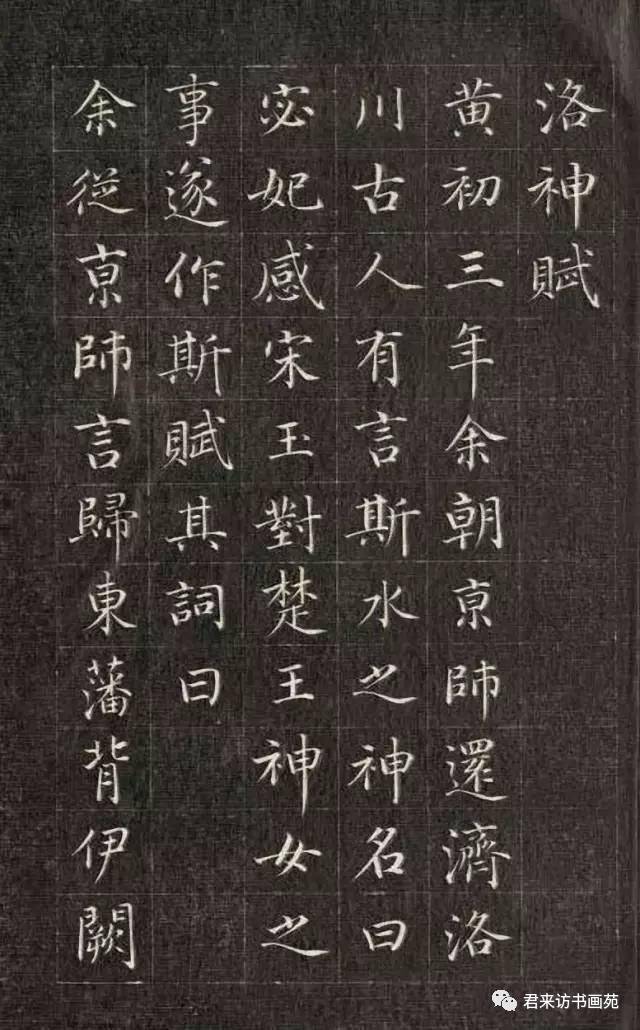 洛神賦
黄初三年余朝京師還濟洛
川古人有言斯水之神名曰
宓妃感宋玉對楚王神女之
事遂作斯賦其詞曰
余従京師言歸東藩背伊闕
君来访书画苑